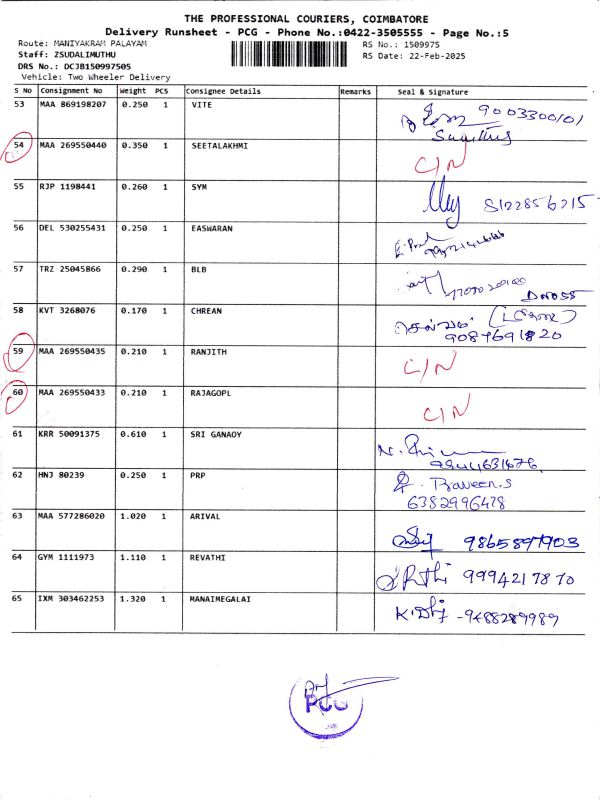 THE PROFESSIONAL COURIERS, COIMBATORE
Delivery Runsheet - PCG - Phone No.:0422-3505555 - Page No.:5
Route: MANIYAKRAM PALAYAM
RS No.: 1509975
Staff: ZSUDALIMUTHU
RS Date: 22-Feb-2025
DRS No.: DCJB150997505
Vehicle: Two Wheeler Delivery
S No Consignment No Weight PCS Consignee Details Remarks Seal & Signature
53 MAA 869198207 0.250 1 VITE
9003300101
54 MAA 269550440 0.350 1 SEETALAKHMI C/N
55 RJP 1198441 0.260 1 SYM 8122856215
56 DEL 530255431 0.250 1 EASWARAN
57 TRZ 25045866 0.290 1 BLB
58 KVT 3268076 0.170 1 CHREAN
9087691820
59 MAA 269550435 0.210 1 RANJITH C/N
60 MAA 269550433 0.210 1 RAJAGOPL C/N
61 KRR 50091375 0.610 1 SRI GANAOY
62 HNJ 80239 0.250 1 PRP Praveen.S
6382996478
63 MAA 577286020 1.020 1 ARIVAL 9865897903
64 GYM 1111973 1.110 1 REVATHI 9994217870
65 IXM 303462253 1.320 1 MANAIMEGALAI -9488289989
PCG